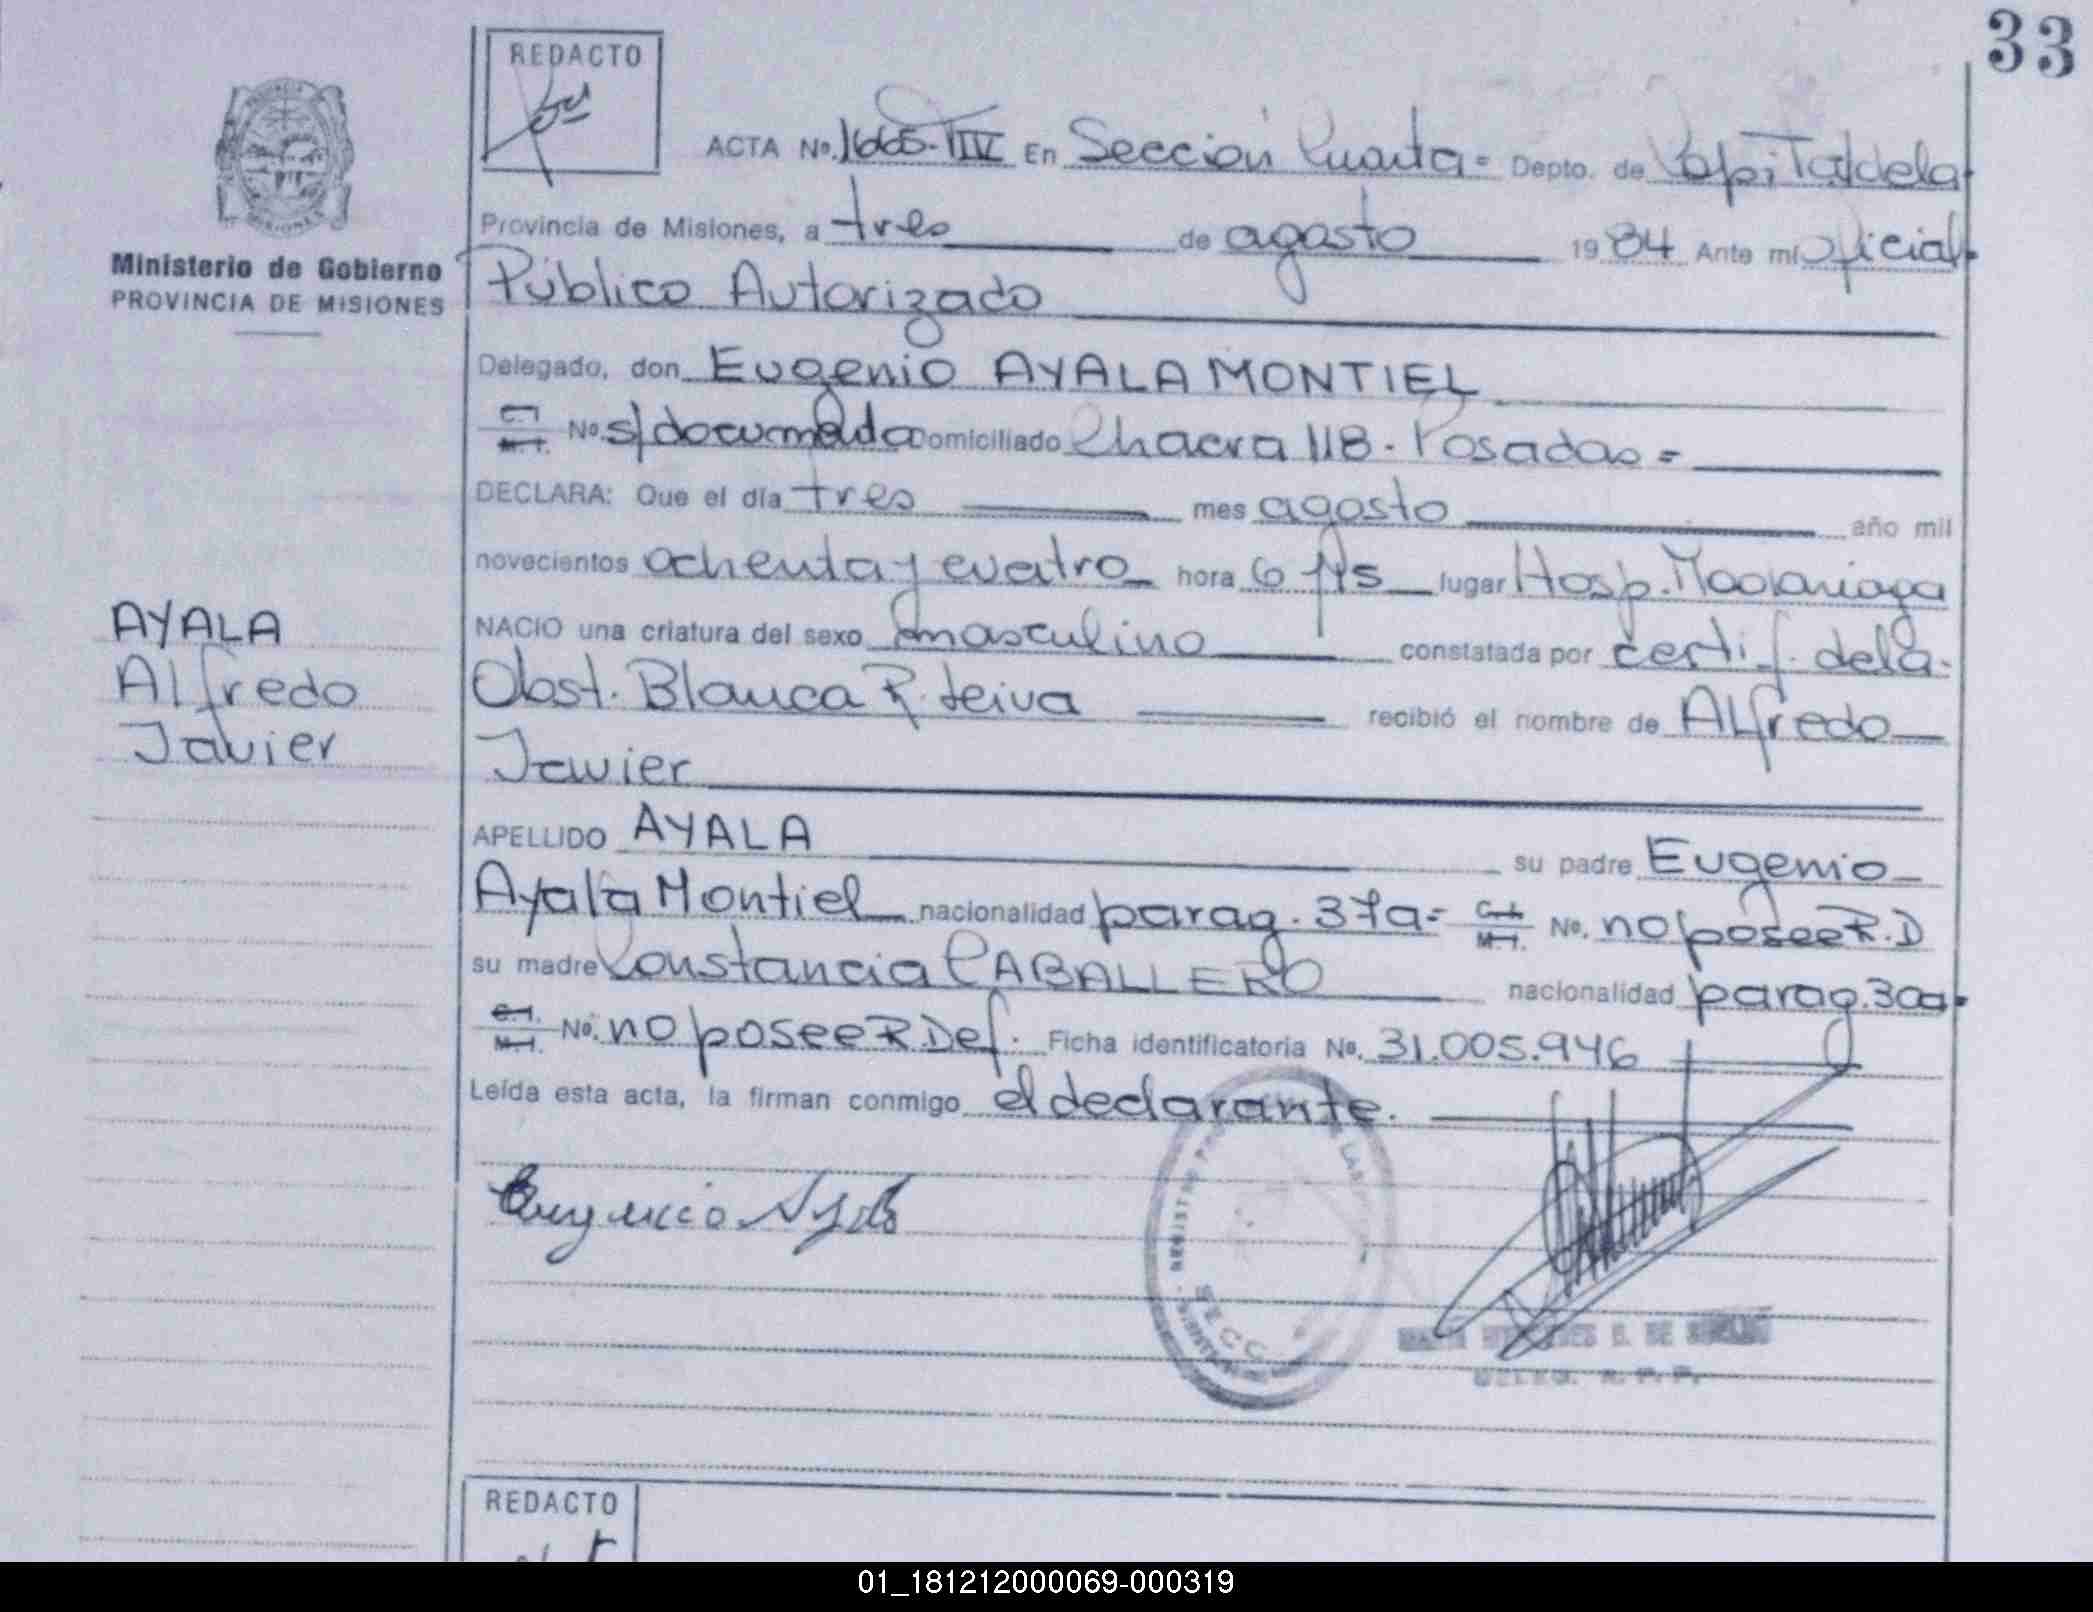 33
REDACTO
ACTA No. 1665-TIIV En Sección Cuarta= Depto. de Capital de la
Provincia de Misiones, a tres de agosto 1984 Ante mí Oficial
Ministerio de Gobierno
PROVINCIA DE MISIONES
Público Autorizado
Delegado, don Eugenio AYALA MONTIEL
C.I. M.I. No. s/documento Domiciliado Chacra 118 - Posadas =
DECLARA: Que el día tres mes agosto año mil
novecientos ochenta y cuatro hora 6 hs lugar Hosp. Madariaga
NACIO una criatura del sexo masculino constatada por certif. de la
Obst. Blanca R. Leiva recibió el nombre de Alfredo
Javier
AYALA
Alfredo
Javier
APELLIDO AYALA su padre Eugenio
Ayala Montiel nacionalidad parag. 37a= C.I. M.I. No. no posee R.D
su madre Constancia CABALLERO nacionalidad parag. 30a-
C.I. M.I. No. no posee R. Def. Ficha identificatoria No. 31.005.946
Leída esta acta, la firman conmigo el declarante.
Eugenio Ayala
REGISTRO
DE LAS
SECC
DELEG. R. P. P.
REDACTO
01_181212000069-000319